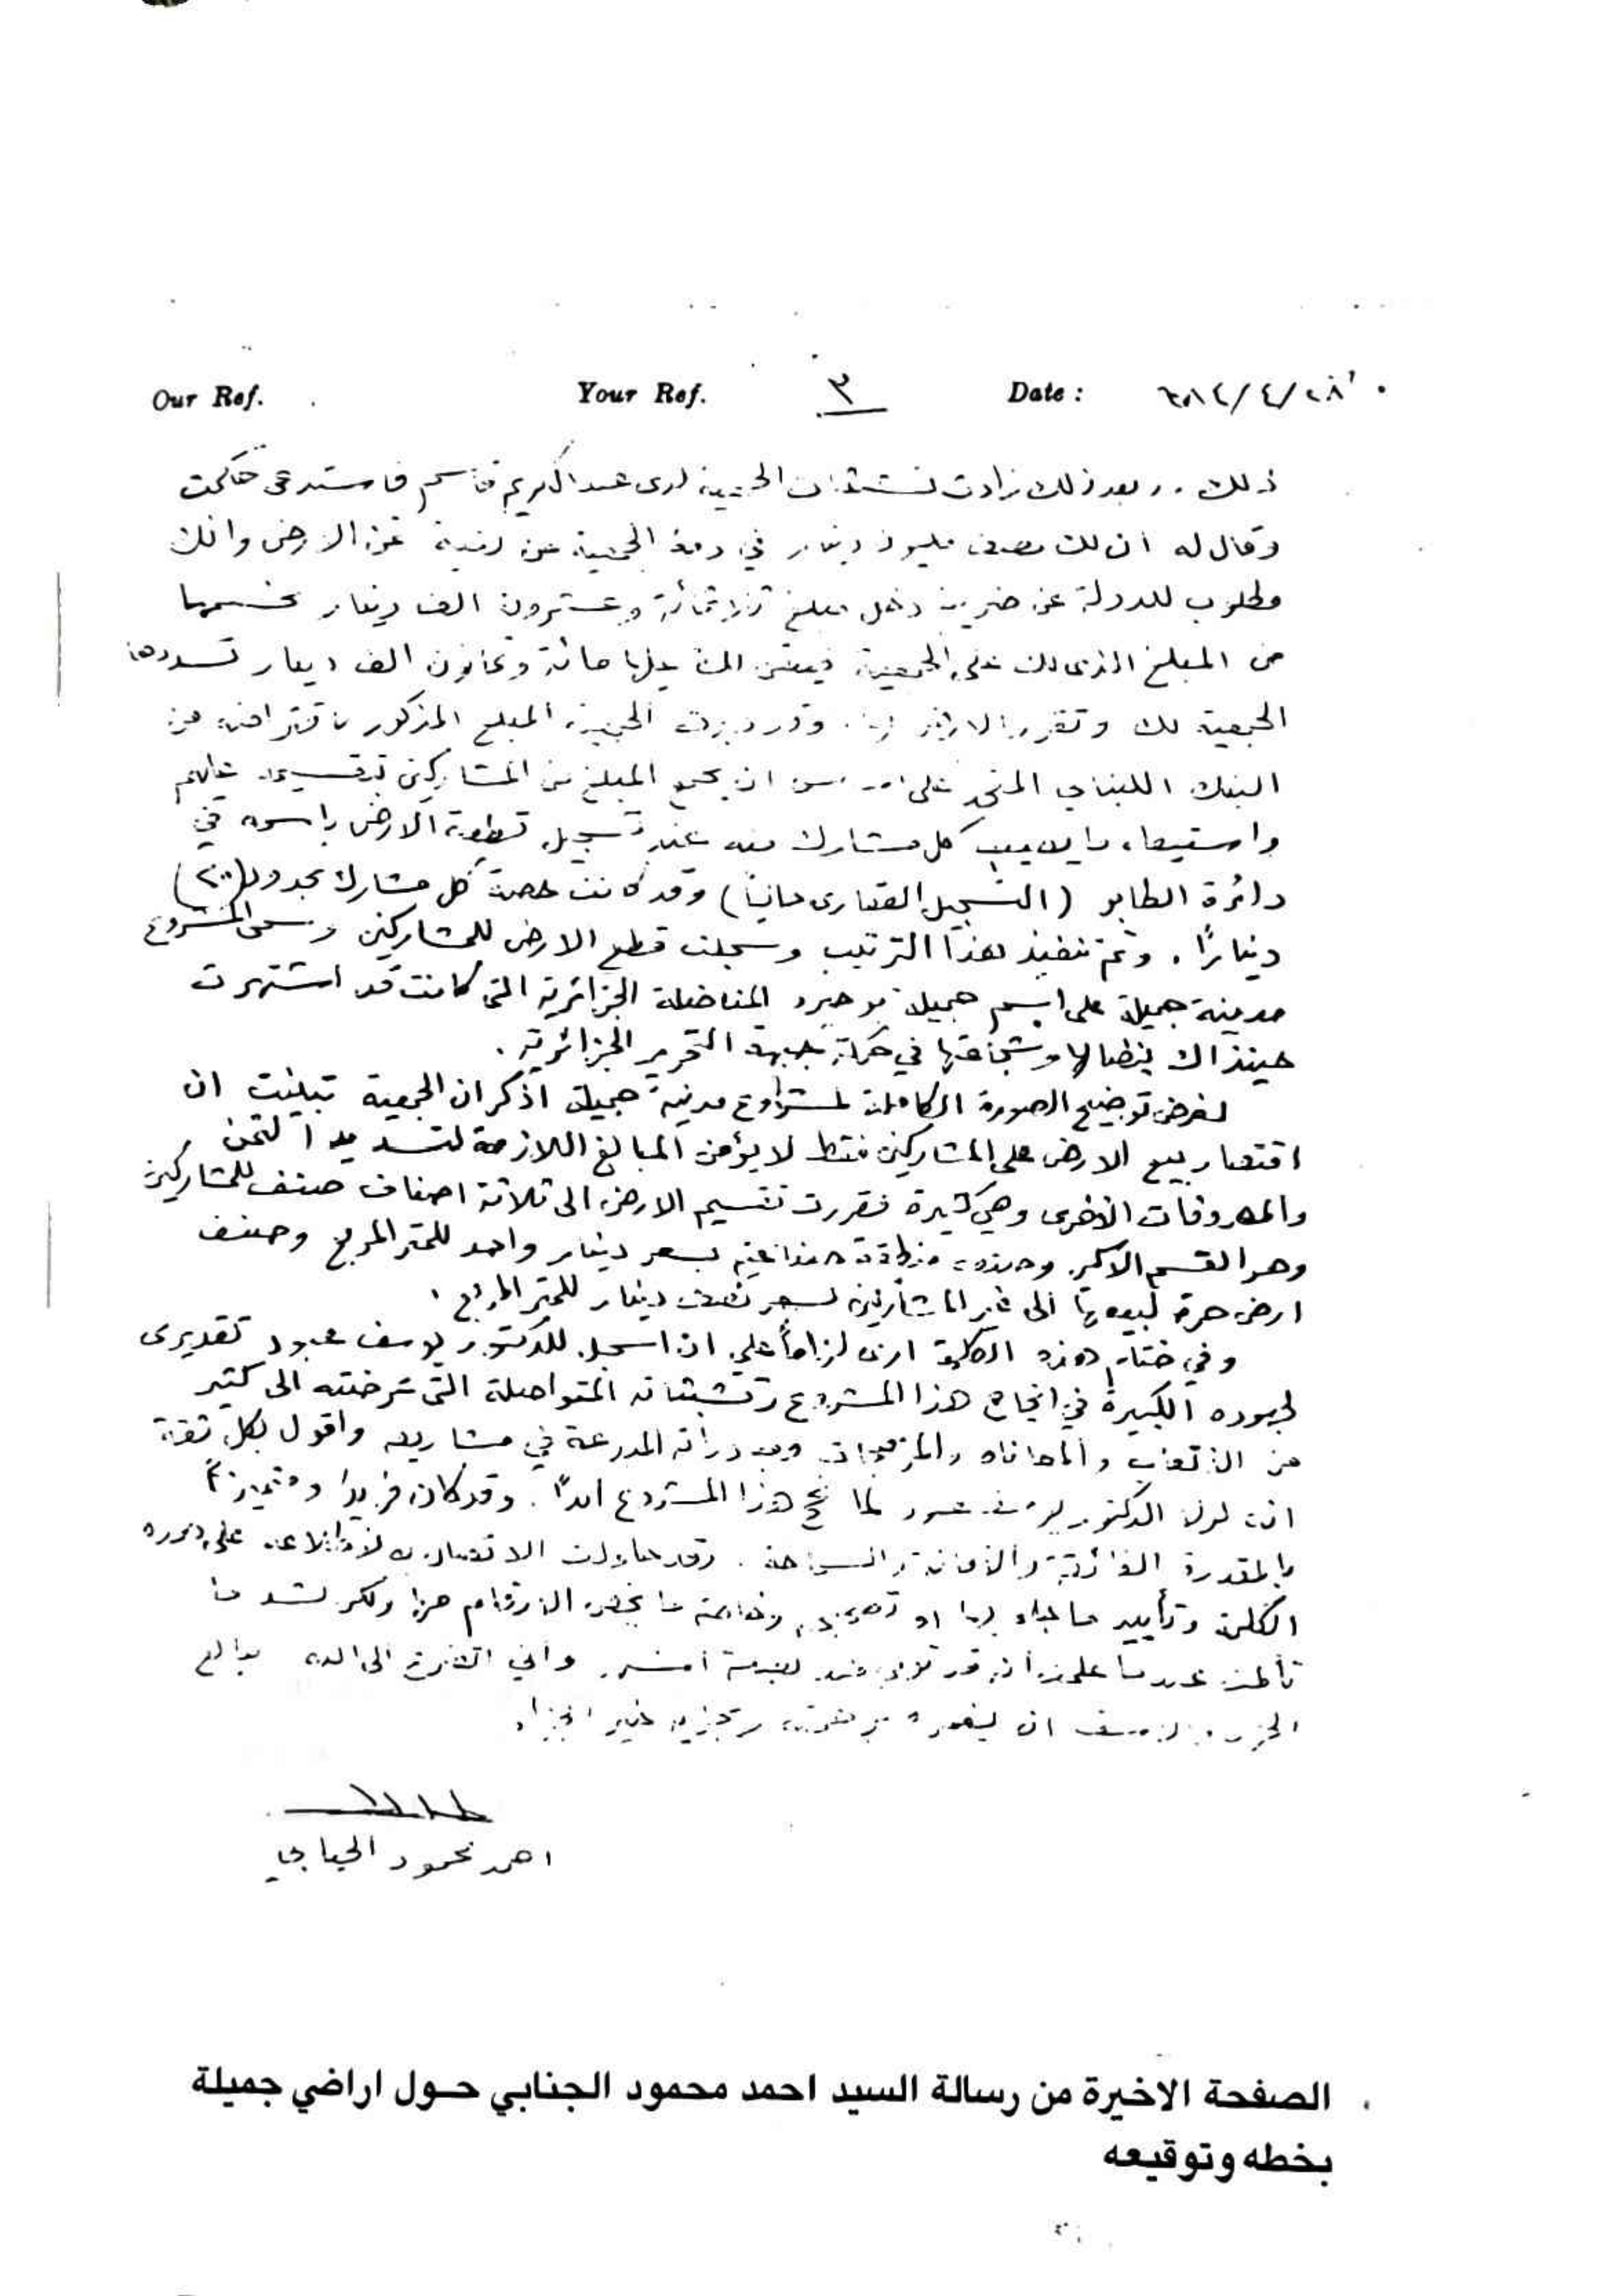 Our Ref. Your Ref. ٣ Date : ٢٠١٢/٤/٢٨
ذلك .. وبعد ذلك زادت الجمعية لدى عبد الكريم قاسم فاستدعى حكمت
وقال له ان لك نصف مليون دينار في ذمة الجمعية عن الارض وانك
مطلوب للدولة عن ضريبة دخل مبلغ ثلاثمائة وعشرون الف دينار نخصمها
من المبلغ الذي لك على الجمعية فيبقى مائة وثمانون الف دينار تسددها
الجمعية لك وقد دبرت الجمعية المبلغ المذكور باقتراضه من
البنك اللبناني المتحد على ان يجمع المبلغ من المشاركين بتقسيمه عليهم
واستيفاء ما يصيب كل مشارك منه عند تسجيل قطعة الارض باسمه في
دائرة الطابو (التسجيل العقاري حالياً) وقد كانت حصة كل مشارك بحدود (٢٠٠)
ديناراً . وتم تنفيذ هذا الترتيب وسجلت قطع الارض للمشاركين وسمى المشروع
مدينة جميلة على اسم جميلة بوحيرد المناضلة الجزائرية التي كانت قد اشتهرت
حينذاك بنضالها وشجاعتها في حركة جبهة التحرير الجزائرية .
لغرض توضيح الصورة الكاملة لمشروع مدينة جميلة اذكر ان الجمعية تبينت ان
اقتصار بيع الارض على المشاركين فقط لا يؤمن المبالغ اللازمة لتسديد الثمن
والمصروفات الاخرى وهي كثيرة فقررت تقسيم الارض الى ثلاثة اصناف صنف للمشاركين
وهو القسم الاكبر وصنف منطقة صناعية بسعر دينار واحد للمتر المربع وصنف
ارض حرة لبيعها الى غير المشاركين بسعر نصف دينار للمتر المربع .
وفي ختام هذه الكلمة ارى لزاماً علي ان اسجل للدكتور يوسف عبود تقديري
لجهوده الكبيرة في انجاح هذا المشروع وتشبثاته المتواصلة التي عرضته الى كثير
من الاتعاب والمعاناة والمزعجات ومبادراته المبدعة في مشاريعه واقول بكل ثقة
انه لولا الدكتور يوسف عبود لما نجح هذا المشروع ابداً . وقد كان فريدا ومتميزاً
بالمقدرة الفائقة والامانة . وقد حاولت الاتصال به لاطلاعه على هذه
الكلمة وتأييد ما جاء بها او تصحيحه وخاصة ما يخص الارقام منها ولكن لشد ما
تألمت عندما علمت أنه قد توفي واني اتضرع الى الله
ان يغمره برحمته ويجزيه خير الجزاء
احمد محمود الجنابي
الصفحة الاخيرة من رسالة السيد احمد محمود الجنابي حول اراضي جميلة
بخطه وتوقيعه